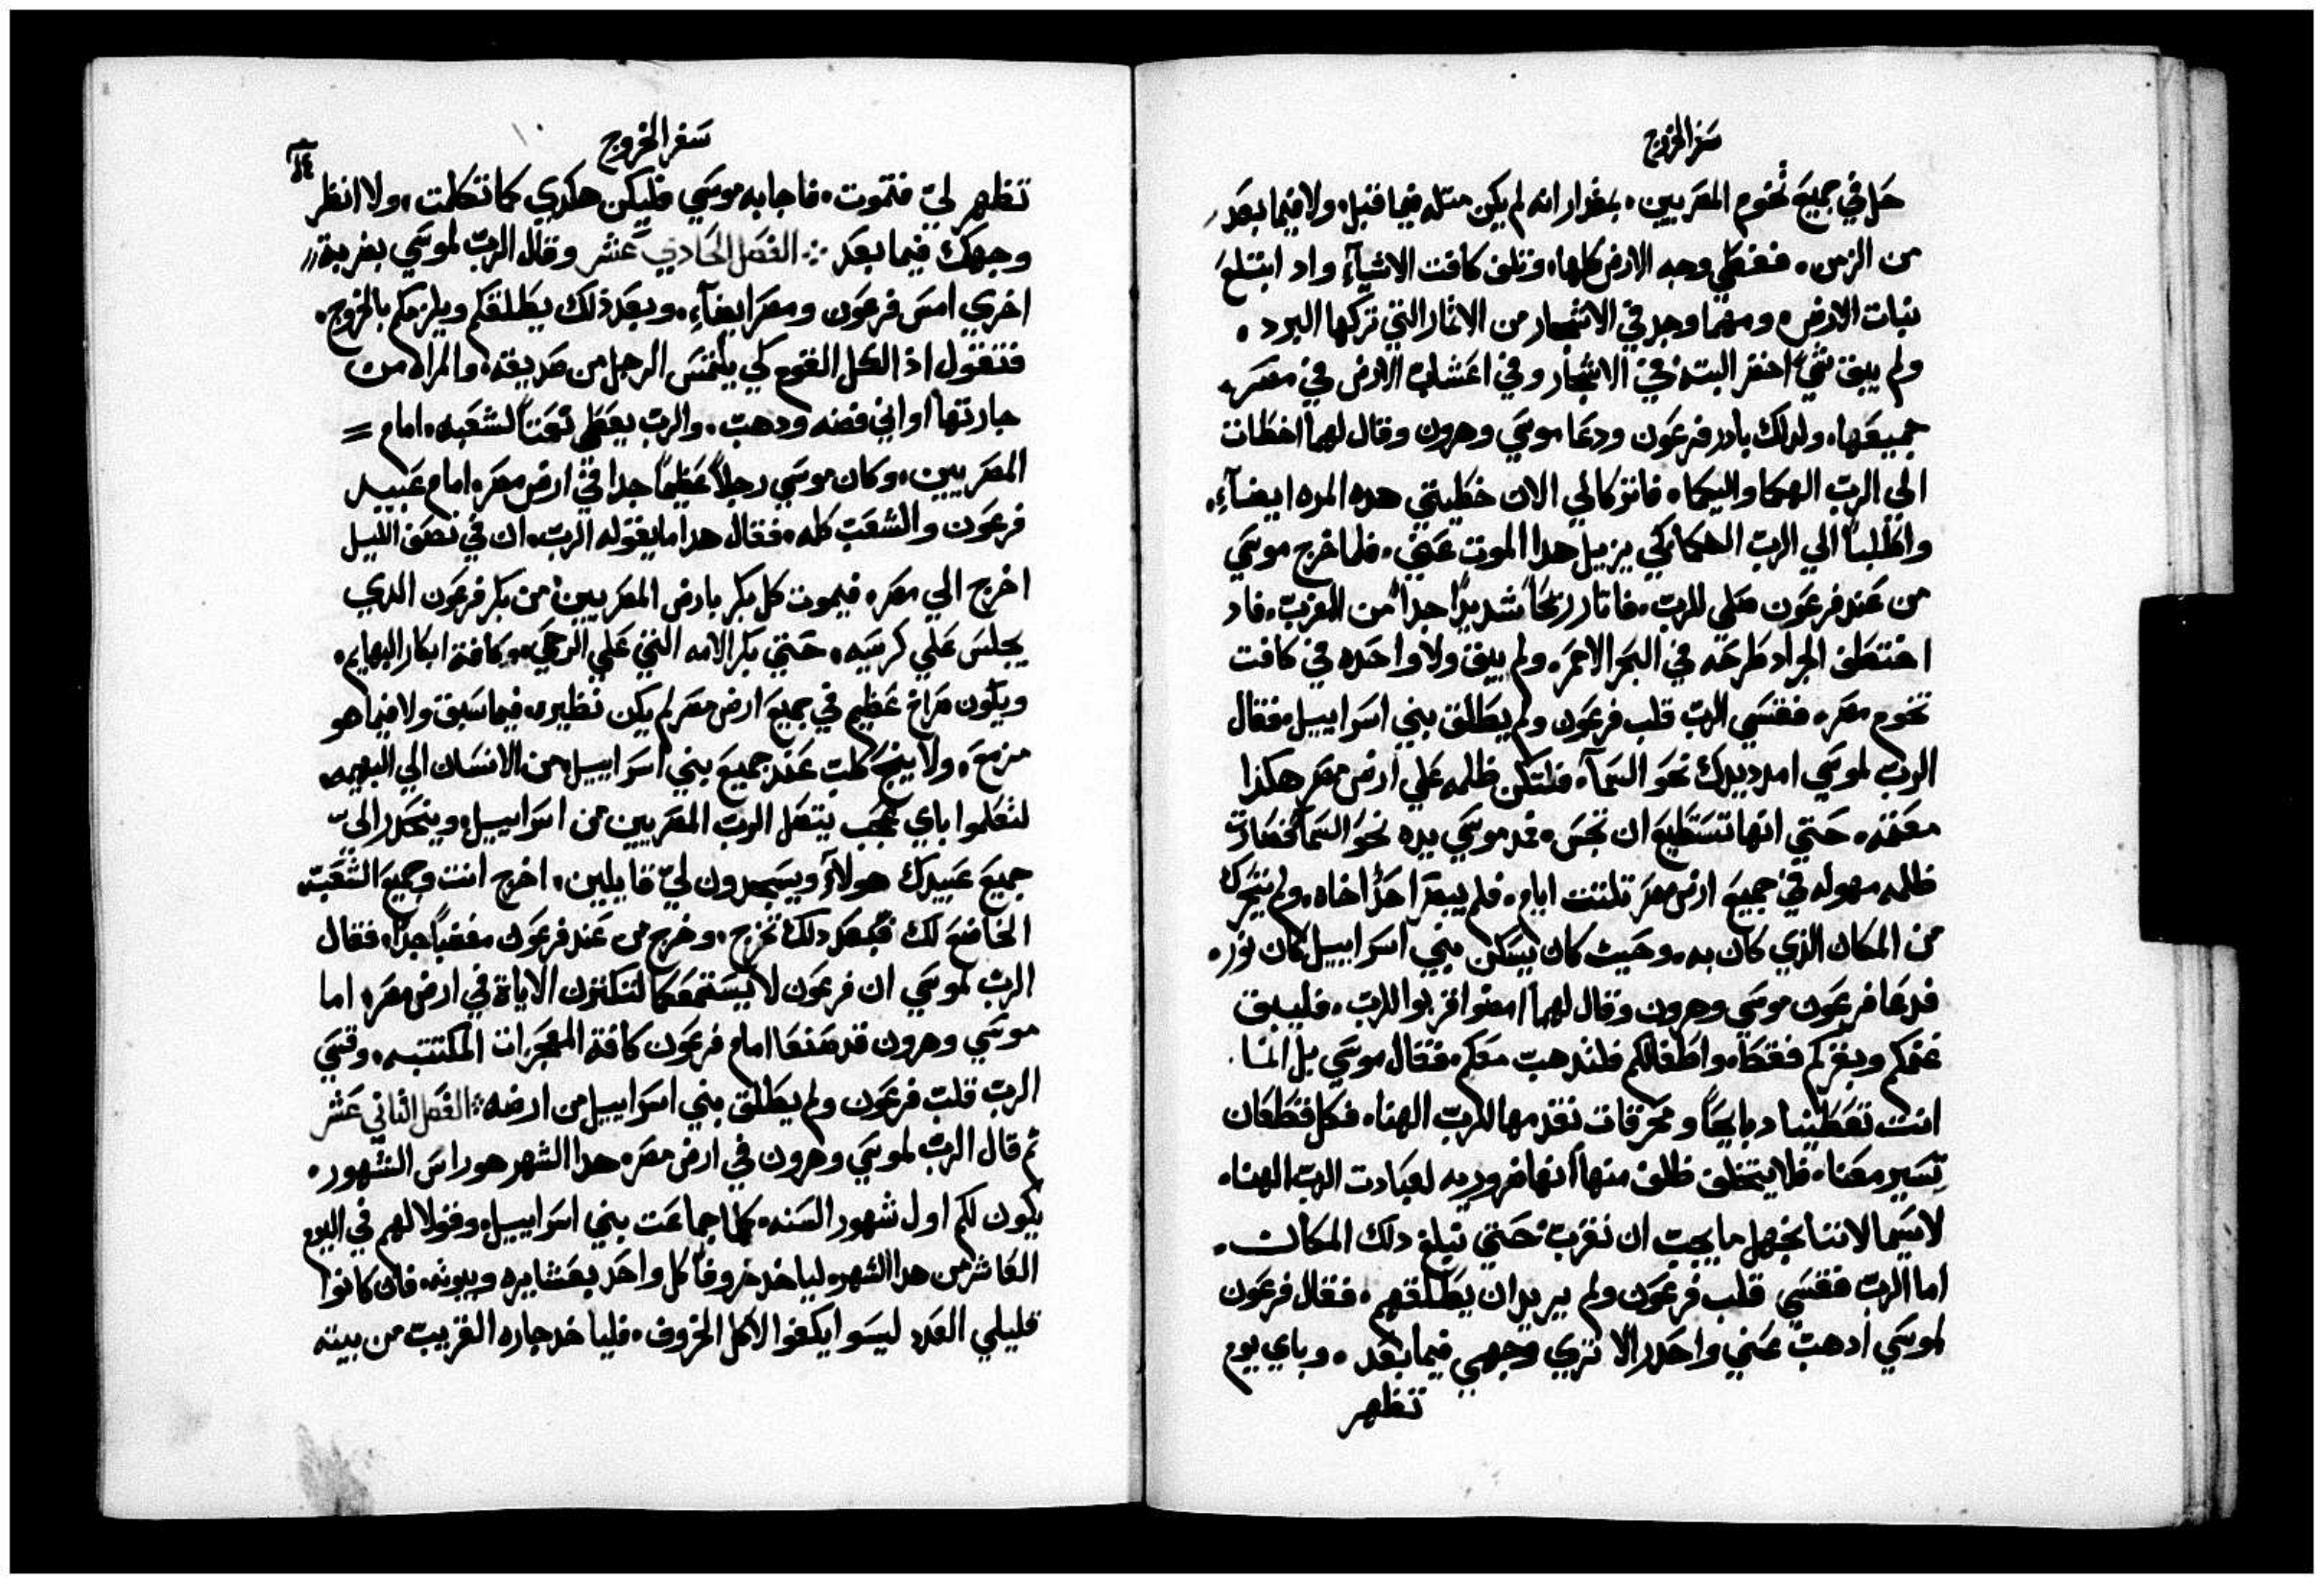 سفر الخروج
حل في جميع تخوم المصريين. بمقدار انه لم يكن متله فيما قبل ولا فيما بعد
من الزمن. فغطي وجه الارض كلها، وتلف كافت الاشيآءِ واد ابتلع
نبات الارض، ومهما وجد في الاشجار من الاثمار التي تركها البرد.
ولم يبق شي اخضر البته في الاشجار وفي اعشاب الارض في مصر
جميعها، ولدلك بادر فرعون ودعا موسي وهرون وقال لهما اخطات
الي الرب الهكما واليكما، فاتركا لي الان خطيتي هده المره ايضآءِ.
واطلبا الي الرب الهكما لكي يزيل هدا الموت عني. فلما خرج موسي
من عند فرعون صلي للرب. فاتار ريحًا شديدًا جدا من الغرب. فاد
اختطف الجراد طرحه في البحر الاحمر. ولم يبق ولا واحده في كافت
تخوم مصر. فقسي الرب قلب فرعون ولم يطلق بني اسراييل. فقال
الرب لموسي امدد يدك نحو السمآ، فلتكن ظلمه علي ارض مصر هكذا
حتي انها تستطيع ان تجس. فمد موسي يده نحو السمآ فصارت
ظلمه مهوله في جميع ارض مصر تلتت ايام. فلم يبصر احدًا اخاه. ولم يتحرك
من المكان الذي كان به. وحيت كان يسكن بني اسراييل كان نور.
فدعا فرعون موسي وهرون وقال لهما امضوا قربوا للرب. فليبق
غنمكم وبقركم فقط، واطفالكم فلتدهب معكم. فقال موسي بل
انت تعطينا دبايحًا ومحرقات نقدمها للرب الهنا، فكل قطعان
تسير معنا. فلا يتخلف ظلف منها انها ضروريه لعبادت الرب الهنا.
لاسيما لاننا نجهل ما يجب ان نقرب حتي نبلغ دلك المكان.
اما الرب فقسي قلب فرعون ولم يريد ان يطلقهم. فقال فرعون
لموسي ادهب عني واحدر الا تري وجهي فيما بعد. وباي يوم
تظهر
سفر الخروج
تظهر ليّ فتموت. فاجابه موسي فليكن هكدي كما تكلمت، ولا انظر
وجهك فيما بعد ÷ الفصل الحادي عشر وقال الرب لموسي بضربة
اخري امس فرعون ومصر ايضآءِ. وبعد ذلك يطلقكم ويلزمكم بالخروج.
فتقول اذ الكل القوم لكي يلتمس الرجل من صديقه، والمراه من
جارتها اواني فضه ودهب. والرب يعطي نعمتًا لشعبه. امام =
المصريين. وكان موسي رجلاً عظيمًا جدا في ارض مصر. امام عبيد
فرعون والشعب كله. فقال هدا ما يقوله الرب. ان في نصف الليل
اخرج الي مصر. فيموت كل بكر بارض المصريين من بكر فرعون الدي
يجلس علي كرسيه. حتي بكر الامه التي علي الرحي. وكافة ابكار البهايم.
ويكون صراخ عظيم في جميع ارض مصر لم يكن نظيره فيما سبق ولا فيما هو
مزمع، ولا ينبح كلب عند جميع بني اسراييل. من الانسان الي البهيمه
لتعلموا باي عجب يتفصل الرب المصريين من اسراييل، وينحدر اليّ
جميع عبيدك هولآءِ ويسجدون ليّ قايلين. اخرج انت وجميع الشعب
الخاضع لك فبعد دلك نخرج. وخرج من عند فرعون مغضبًا جدًا، فقال
الرب لموسي ان فرعون لا يستمعكما لتكترن الاياة في ارض مصر، اما
موسي وهرون قد صنعا امام فرعون كافة المعجزات المكتتبه. وقسي
الرب قلب فرعون ولم يطلق بني اسراييل من ارضه ÷ الفصل التاني عشر
ثم قال الرب لموسي وهرون في ارض مصر. هدا الشهر هو راس الشهور.
يكون لكم اول شهور السنه. كلما جماعت بني اسراييل، وقولا لهم في اليوم
العاشر من هدا الشهر. لياخد خروفًا كل واحد بعشايره وبيوته. فان كانوا
قليلي العدد ليسوا يكفوا لاكل الخروف. فلياخد جاره القريب من بيته